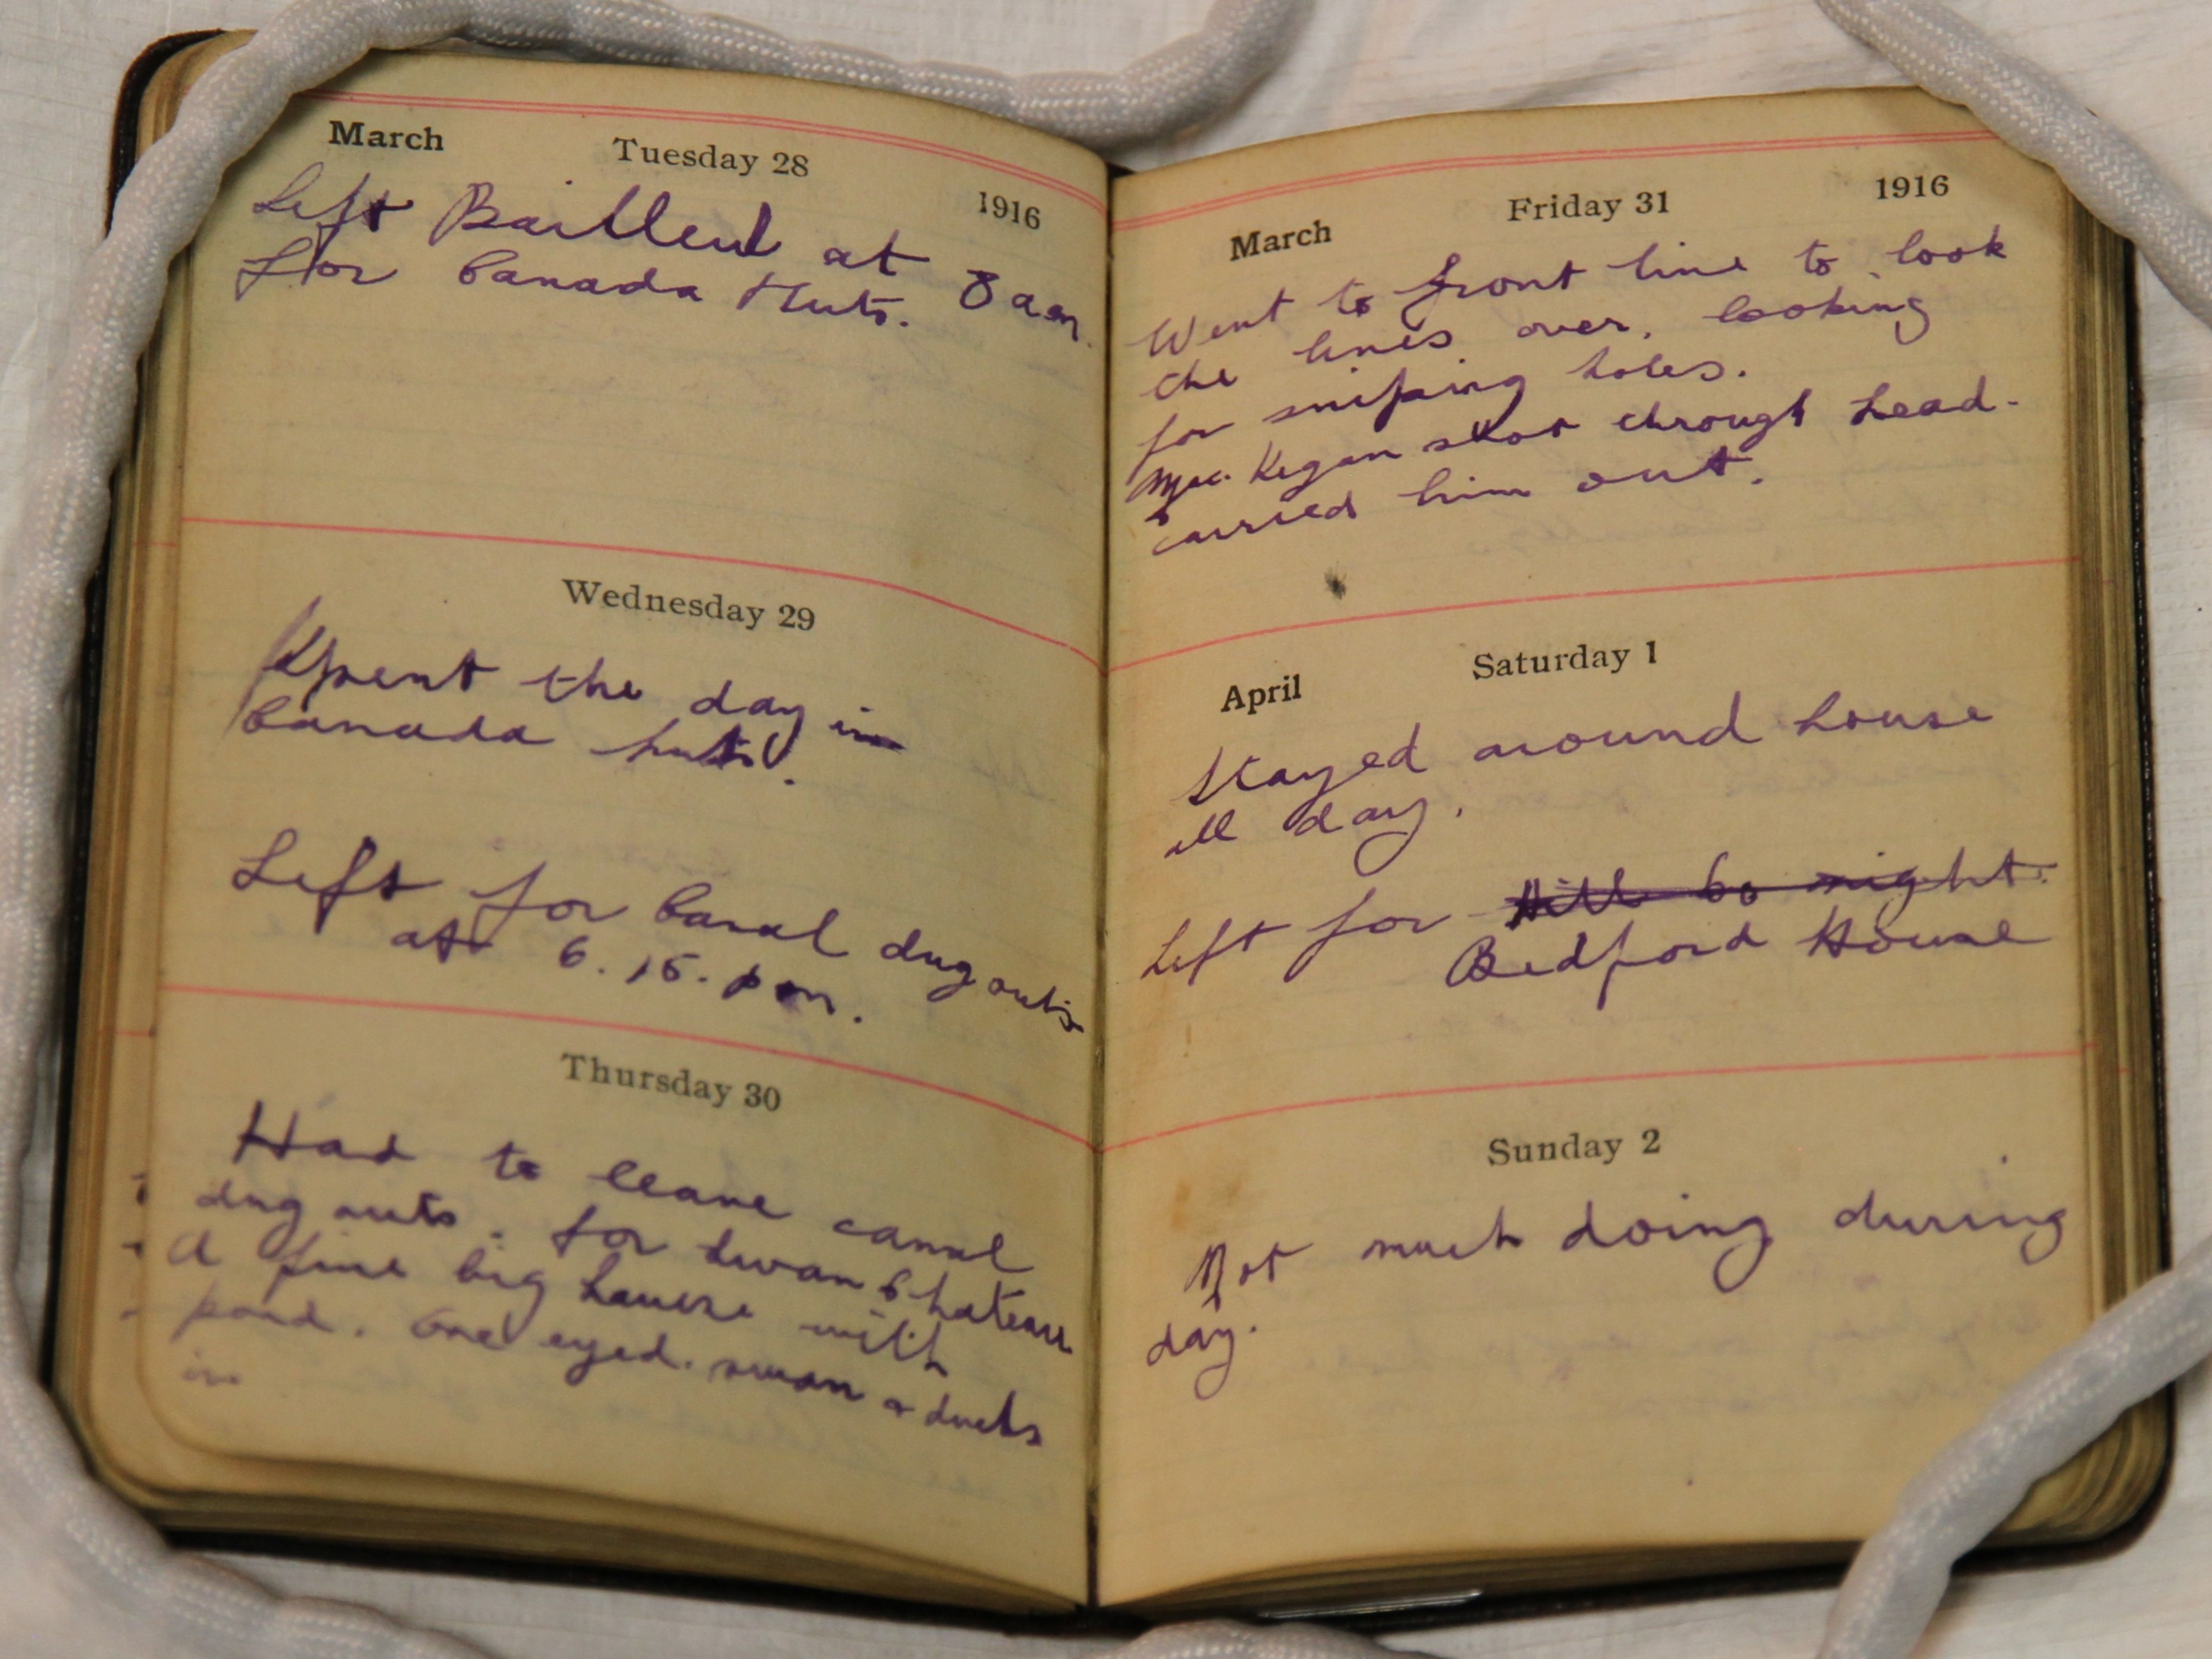 March Tuesday 28 1916
Left Bailleul at 8 am.
for Canada Huts.
Wednesday 29
Spent the day in
Canada huts.
Left for Canal dug outs
at 6.15. pm.
Thursday 30
Had to leave canal
dug outs. for Swan Chateau
A fine big house with
pond. One eyed. swan & ducks
in
March Friday 31 1916
Went to front line to look
the lines over. looking
for sniping holes.
Mac. Kegan shot through head.
carried him out.
April Saturday 1
Stayed around house
all day.
Left for Hill 60 night.
Bedford House
Sunday 2
Not much doing during
day.